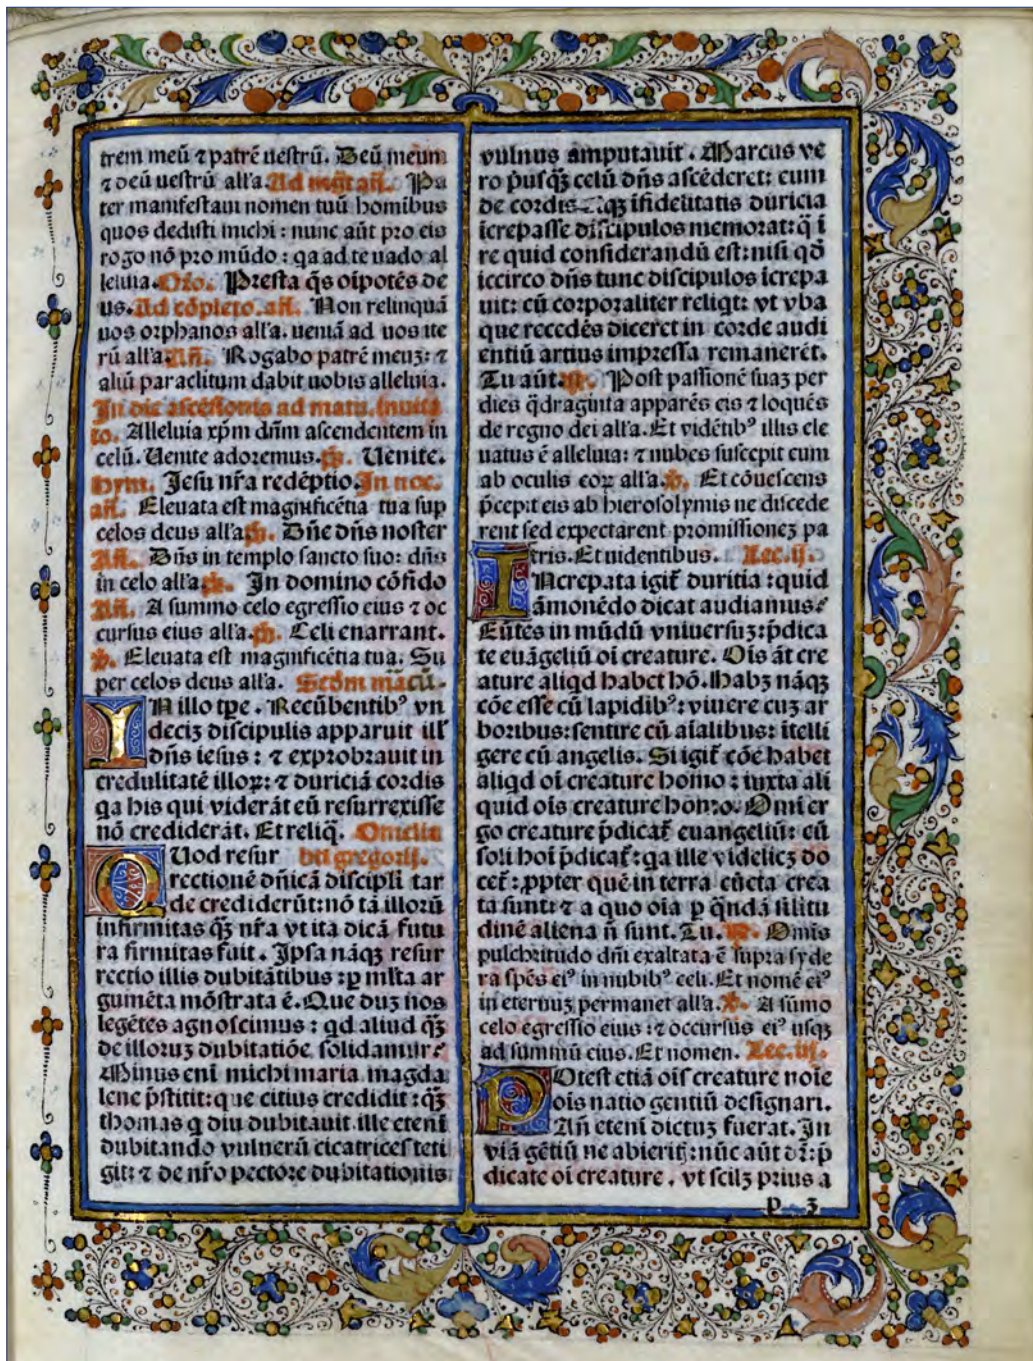 trem meū ⁊ patrē uestrū. Deū meum
⁊ deū uestrū all'a. Ad mgt̄ an̄. Pa
ter manifestaui nomen tuū hominibus
quos dedisti michi : nunc aūt pro eis
rogo nō pro mūdo : qa ad te uado al
leluia. Oro. Presta qs oipotēs de
us. Ad cōpleto. an̄. Non relinquā
uos orphanos all'a. ueniā ad uos ite
rū all'a. An̄. Rogabo patrē meuꝫ: ⁊
aliū paraclitum dabit uobis alleluia.
In die ascēsionis ad matu. Inuita
to. Alleluia xp̄m dn̄m ascendentem in
celū. Uenite adoremus. ps. Uenite.
hym. Jesu nr̄a redēptio. In noc.
an̄. Eleuata est magnificētia tua sup
celos deus all'a. ps. Dn̄e dn̄s noster
An̄. Dn̄s in templo sancto suo: dn̄s
in celo all'a. ps. In domino cōfido
An̄. A summo celo egressio eius ⁊ oc
cursus eius all'a. ps. Celi enarrant.
℣. Eleuata est magnificētia tua. Su
per celos deus all'a. Scdm marcū.
IN illo tp̄e. Recūbentibꝰ vn
deciꝫ discipulis apparuit ill'
dn̄s iesus : ⁊ exprobrauit in
credulitatē illoꝝ: ⁊ duriciā cordis
qa his qui viderāt eū resurrexisse
nō crediderāt. Et reliq̄. Omelia
QUod resur bti gregorij.
rectionē dn̄icā discipl'i tar
de crediderūt: nō tā illorū
infirmitas qꝫ nr̄a vt ita dicā futu
ra firmitas fuit. Ipsa nāqꝫ resur
rectio illis dubitātibus : ꝑ ml'ta ar
gumēta mōstrata ē. Que duꝫ nos
legētes agnoscimus : qd aliud qꝫ
de illoruꝫ dubitatiōe solidamur?
Minus eni michi maria magda
lene p̄stitit: que citius credidit : qꝫ
thomas q diu dubitauit. ille eteni
dubitando vulnerū cicatrices teti
git: ⁊ de nr̄o pectore dubitationis
vulnus amputauit. Marcus ve
ro p̄usqꝫ celū dn̄s ascēderet: eum
de cordis atqꝫ ifidelitatis duricia
icrepasse discipulos memorat: q̄ i
re quid considerandū est: nisi qd̄
iccirco dn̄s tunc discipulos icrepa
uit: cū corporaliter reliqt: vt vba
que recedēs diceret in corde audi
entiū artius impressa remanerēt.
Tu aūt. ℟. Post passionē suaꝫ per
dies q̄draginta apparēs eis ⁊ loquēs
de regno dei all'a. Et vidētibꝰ illis ele
uatus ē alleluia: ⁊ nubes suscepit eum
ab oculis eoꝝ all'a. ℣. Et cōuescens
p̄cepit eis ab hierosolymis ne discede
rent sed expectarent promissioneꝫ pa
tris. Et uidentibus. Lec.ij.
INcrepata igit̄ duritia : quid
āmonēdo dicat audiamus?
Eūtes in mūdū vniuersuꝫ: p̄dica
te euāgeliū oi creature. Ois āt cre
ature aliqd habet hō. Habꝫ nāqꝫ
cōe esse cū lapidibꝰ: viuere cuꝫ ar
boribus: sentire cū aialibus: itelli
gere cū angelis. Si igit̄ cōe habet
aliqd oi creature homo : iuxta ali
quid ois creature homo. Omi er
go creature p̄dicat̄ euangeliū: cū
soli hoi p̄dicat̄: qa ille videlicꝫ do
cet̄ : ꝓpter quē in terra cūcta crea
ta sunt: ⁊ a quo oia ꝑ q̄ndā silitu
dinē aliena n̄ sunt. Tu. ℟. Omis
pulchritudo dn̄i exaltata ē supra syde
ra spēs eiꝰ in nubibꝰ celi. Et nomē eiꝰ
in eternuꝫ permanet all'a. ℣. A sūmo
celo egressio eius : ⁊ occursus eiꝰ usqꝫ
ad summū eius. Et nomen. Lec.iij.
POtest etiā ois creature noie
ois natio gentiū designari.
An̄ eteni dictuꝫ fuerat. In
viā gētiū ne abieritꝭ: nūc aūt dr̄: p̄
dicate oi creature. vt scilꝫ prius a
p 3